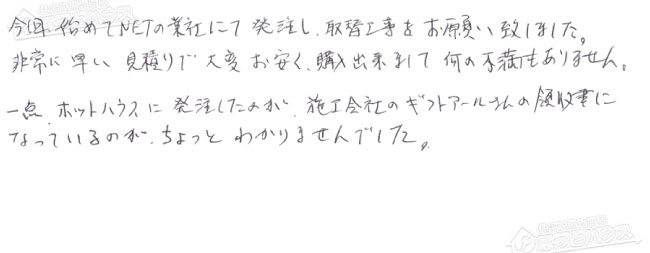 今回、始めてNETの業社にて発注し、取替工事をお願い致しました。
非常に早い見積りで大変お安く、購入出来まして何の不満もありません。
一点、ホットハウスに発注したのが、施工会社のギフトアールさんの領収書に
なっているのが、ちょっとわかりませんでした。